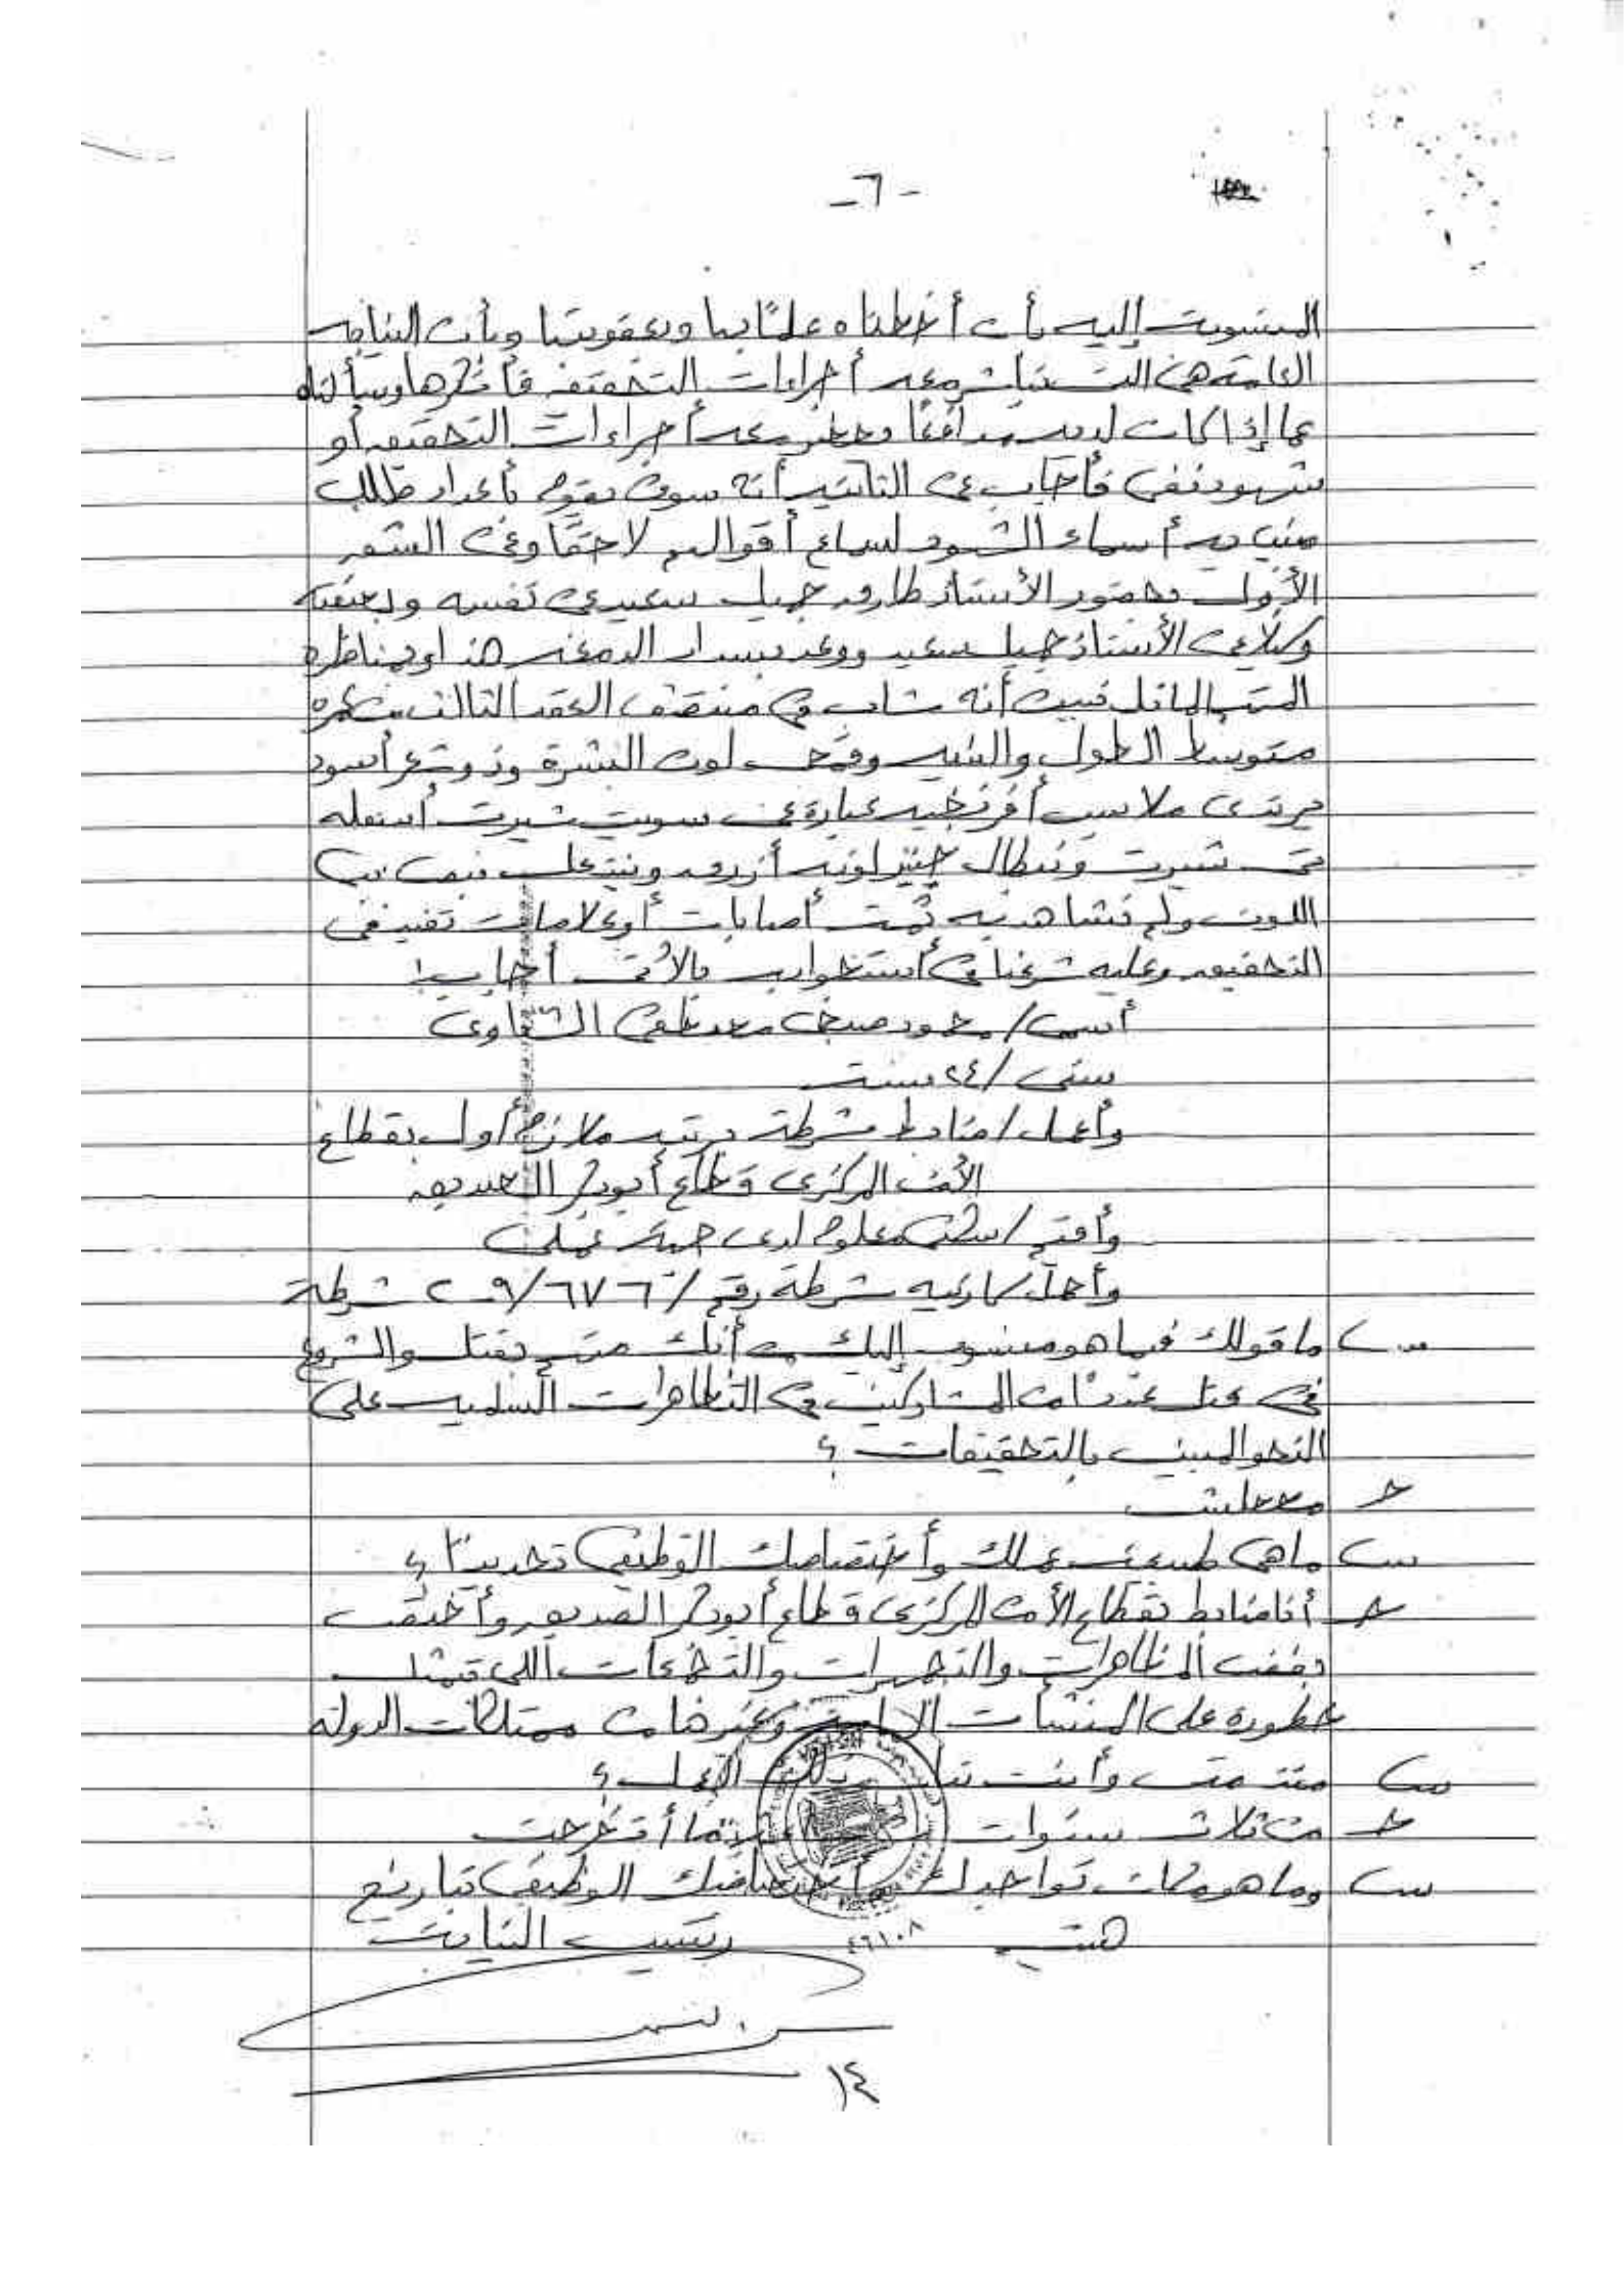 -٦-
المنسوبة إليه بأن أخطناه علمًا بها وبعقوبتها وبأن النيابه
العامة هى التى تباشر معه أجراءات التحقيق فأنكرها وسألناه
عما إذا كان لديه مدافعًا يحضر معه أجراءات التحقيق أو
شهود نفى فأجاب عن الثانيه أنه سوف يقوم بأعداد طلب
مبين به أسماء الشهود لسماع أقوالهم لاحقًا وعن الشق
الأول بحضور الأستاذ طارق جميل سعيد عن نفسه وبصفته
وكيلا عن الأستاذ جميل سعيد ووعد بسداد الدمغه هذا وبمناظرة
المتهم الماثل تبين أنه شاب فى منتصف العقد الثالث من عمره
متوسط الطول والبنيه وقمحى لون البشرة وذو شعر أسود
يرتدى ملابس أفرنجيه عبارة عن سويت شيرت أسفله
تى شيرت وبنطال جينز لونه أزرق وينتعل بنى
اللون ولم نشاهد به ثمت أصابات أو علامات تفيد فى
التحقيق وعليه شرعنا فى أستجوابه بالأتى أجاب:
أسمى / محمود صبحى الشناوى
سنى / ٢٤ سنة
وأعمل / ضابط شرطة برتبه ملازم أول بقطاع
الأمن المركزى قطاع أبوبكر الصديق
وأقيم / سكنى معلوم لدى جهة عملى
وأحمل كارنيه شرطة رقم / ٦٧٦ / ٢٠٠٩ شرطة
س ما قولك فيما هو منسوب إليك من أنك متهم بقتل والشروع
فى قتل عددًا من المشاركين فى التظاهرات السلميه على
النحو المبين بالتحقيقات ؟
ج محصلش
س ما هى طبيعة عملك وأختصاصك الوظيفى تحديدًا ؟
ج أنا ضابط بقطاع الأمن المركزى قطاع أبوبكر الصديق وأختص
بفض المظاهرات والتجمهرات والتجمعات اللى تمثل
خطورة على المنشأت الهامة وغيرها من ممتلكات الدولة
س منذ متى وأنت تباشر ذلك العمل ؟
ج من ثلاث سنوات أتخرجت
س وما هو مكان تواجدك أختصاصك الوظيفى بتاريخ
رئيس النيابة
٤٦١٠٨
١٤